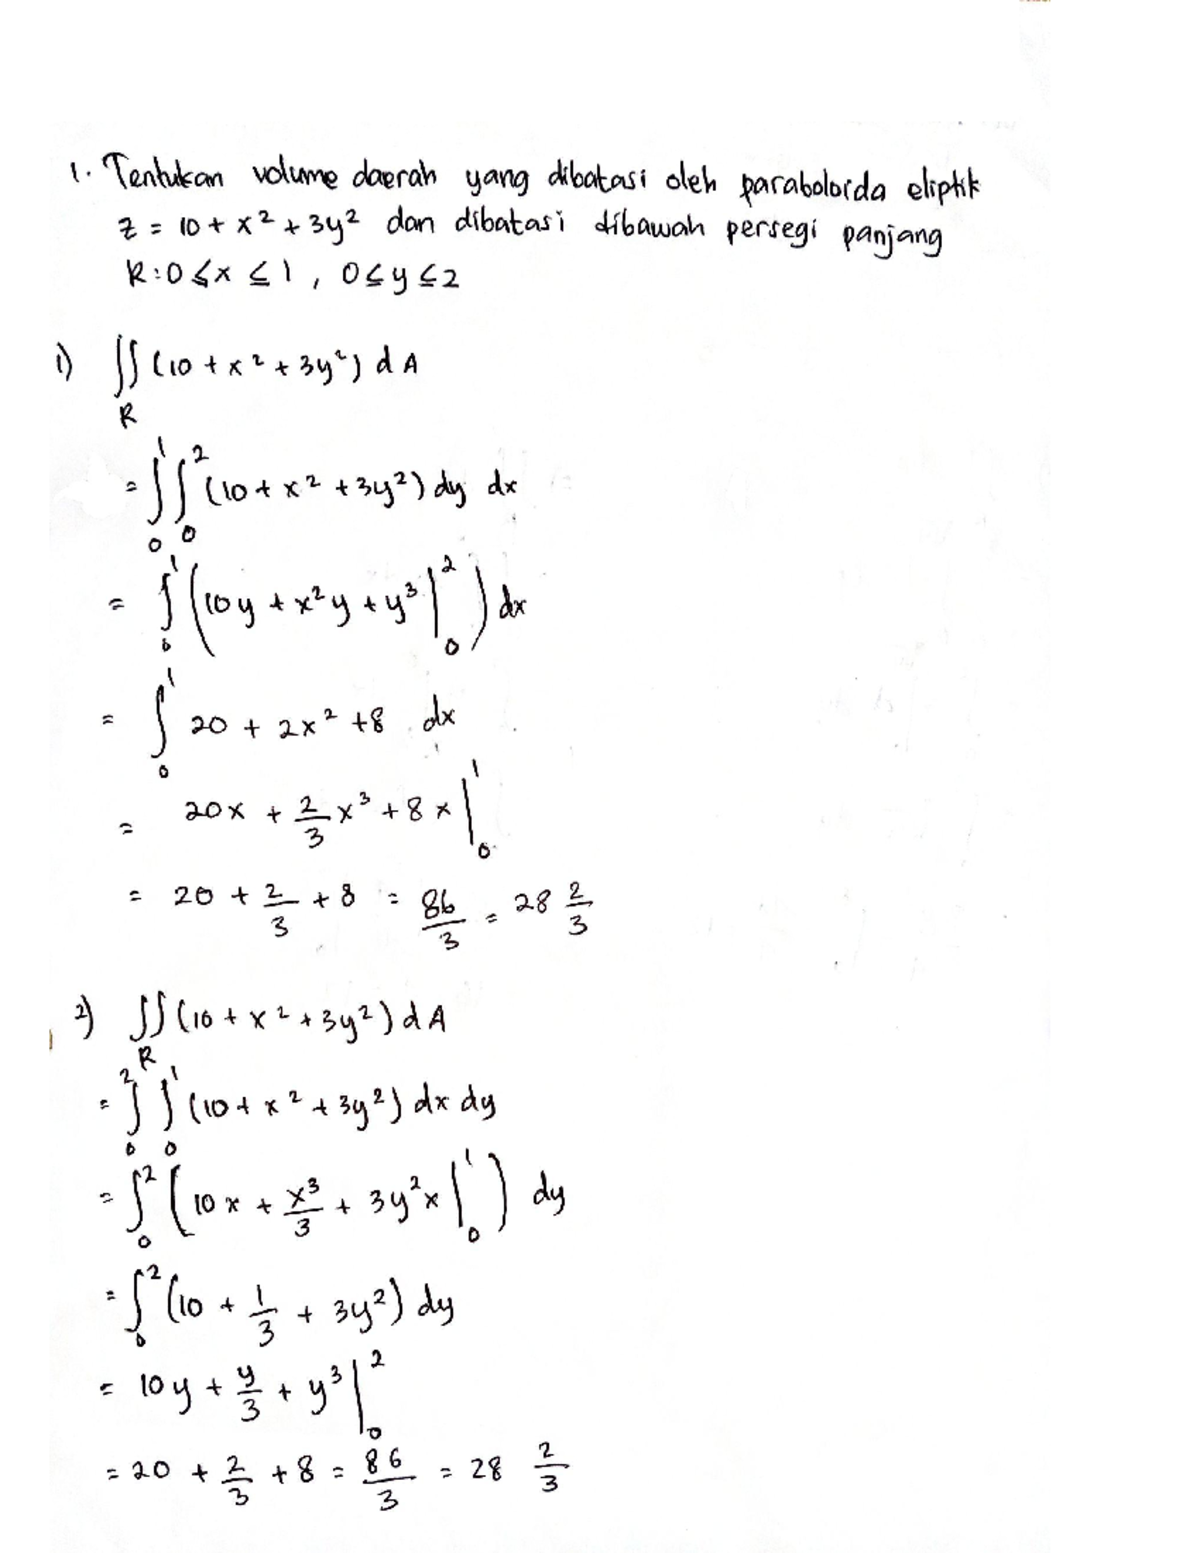 1. Tentukan volume daerah yang dibatasi oleh paraboloida eliptik
z = 10 + x² + 3y² dan dibatasi dibawah persegi panjang
R : 0 ≤ x ≤ 1 , 0 ≤ y ≤ 2
1) ∬_R (10 + x² + 3y²) dA
= ∫₀¹ ∫₀² (10 + x² + 3y²) dy dx
= ∫₀¹ (10y + x²y + y³ |₀²) dx
= ∫₀¹ 20 + 2x² + 8 dx
= 20x + 2/3 x³ + 8x |₀¹
= 20 + 2/3 + 8 = 86/3 = 28 2/3
2) ∬_R (10 + x² + 3y²) dA
= ∫₀² ∫₀¹ (10 + x² + 3y²) dx dy
= ∫₀² (10x + x³/3 + 3y²x |₀¹) dy
= ∫₀² (10 + 1/3 + 3y²) dy
= 10y + y/3 + y³ |₀²
= 20 + 2/3 + 8 = 86/3 = 28 2/3